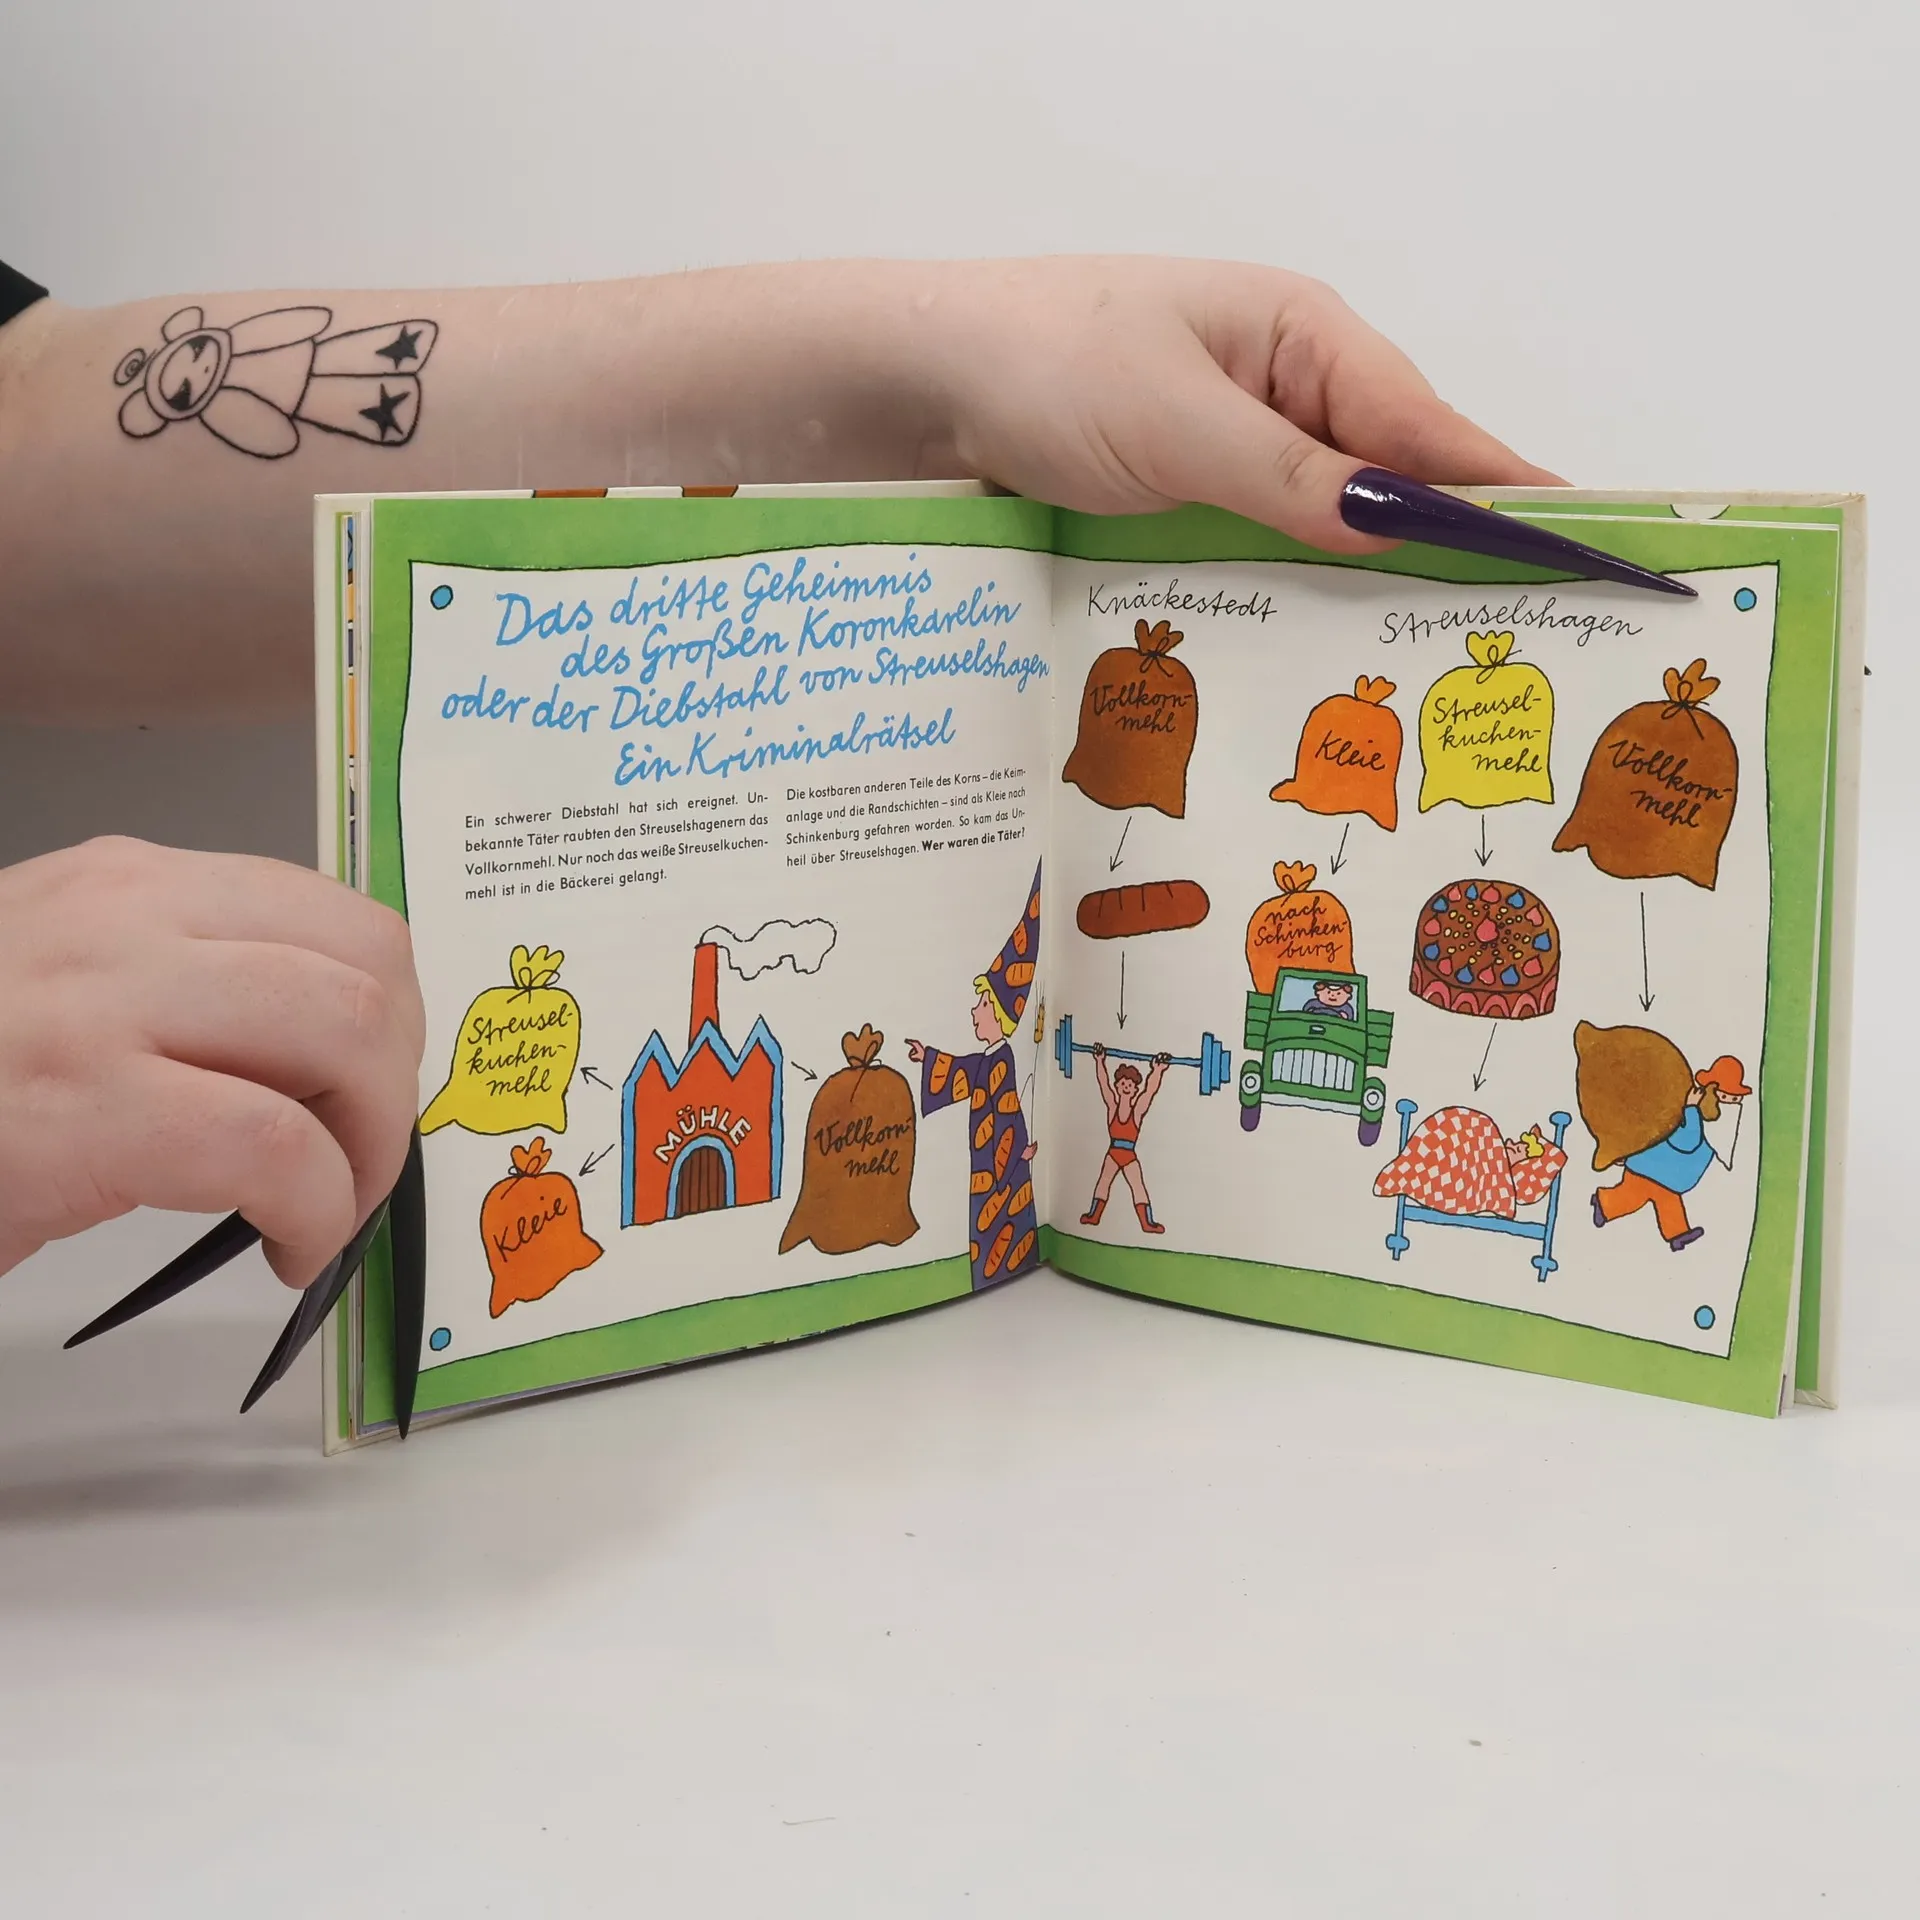 Das dritte Geheimnis
des Großen Koronkarelin
oder der Diebstahl von Streuselshagen
Ein Kriminalrätsel
Ein schwerer Diebstahl hat sich ereignet. Un-
bekannte Täter raubten den Streuselshagenern das
Vollkornmehl. Nur noch das weiße Streuselkuchen-
mehl ist in die Bäckerei gelangt.
Die kostbaren anderen Teile des Korns – die Keim-
anlage und die Randschichten – sind als Kleie nach
Schinkenburg gefahren worden. So kam das Un-
heil über Streuselshagen. Wer waren die Täter?
Streusel-
kuchen-
mehl
Kleie
MÜHLE
Vollkorn-
mehl
Knäckestedt
Streuselshagen
Vollkorn-
mehl
Kleie
Streusel-
kuchen-
mehl
Vollkorn-
mehl
nach
Schinken-
burg